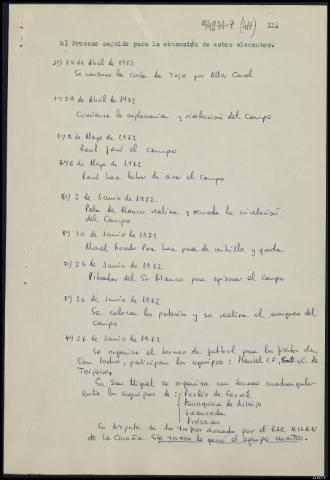 B) Proceso seguido para la obtención de estos elementos.
1º) 25 de Abril de 1972
Se comienza la Corta de Tojo por Alla Canal
2º) 29 de Abril de 1972
Comienza la explanación y nivelación del Campo
3º) 5 de Mayo de 1972
el Campo
6 de Mayo de 1972
labor de arar el Campo
2 de Junio de 1972.
Pala de Blanco realiza y remata la nivelación
del Campo
6º) 20 de Junio de 1972
Manel hace pase de y grada
7º) 25 de Junio de 1972.
Vibrador del Sr. Blanco para apisonar el Campo
8º) 26 de Junio de 1972
Se colocan las porterías y se realiza el marqueo del
Campo
9º) 27 de Junio de 1972.
Se organiza el torneo de futbol para las fiestas de
San Pedro, participan los equipos: C.F., S.C. de
Teijeiro.
En San Miguel se organiza un torneo cuadrangular
entre los equipos de: Perlío de Ferrol
Parroquia de Arteijo
Juanceda
Présaras
En disputa de un trofeo donado por el BAR
de La Coruña Este torneo lo ganó el equipo nuestro.